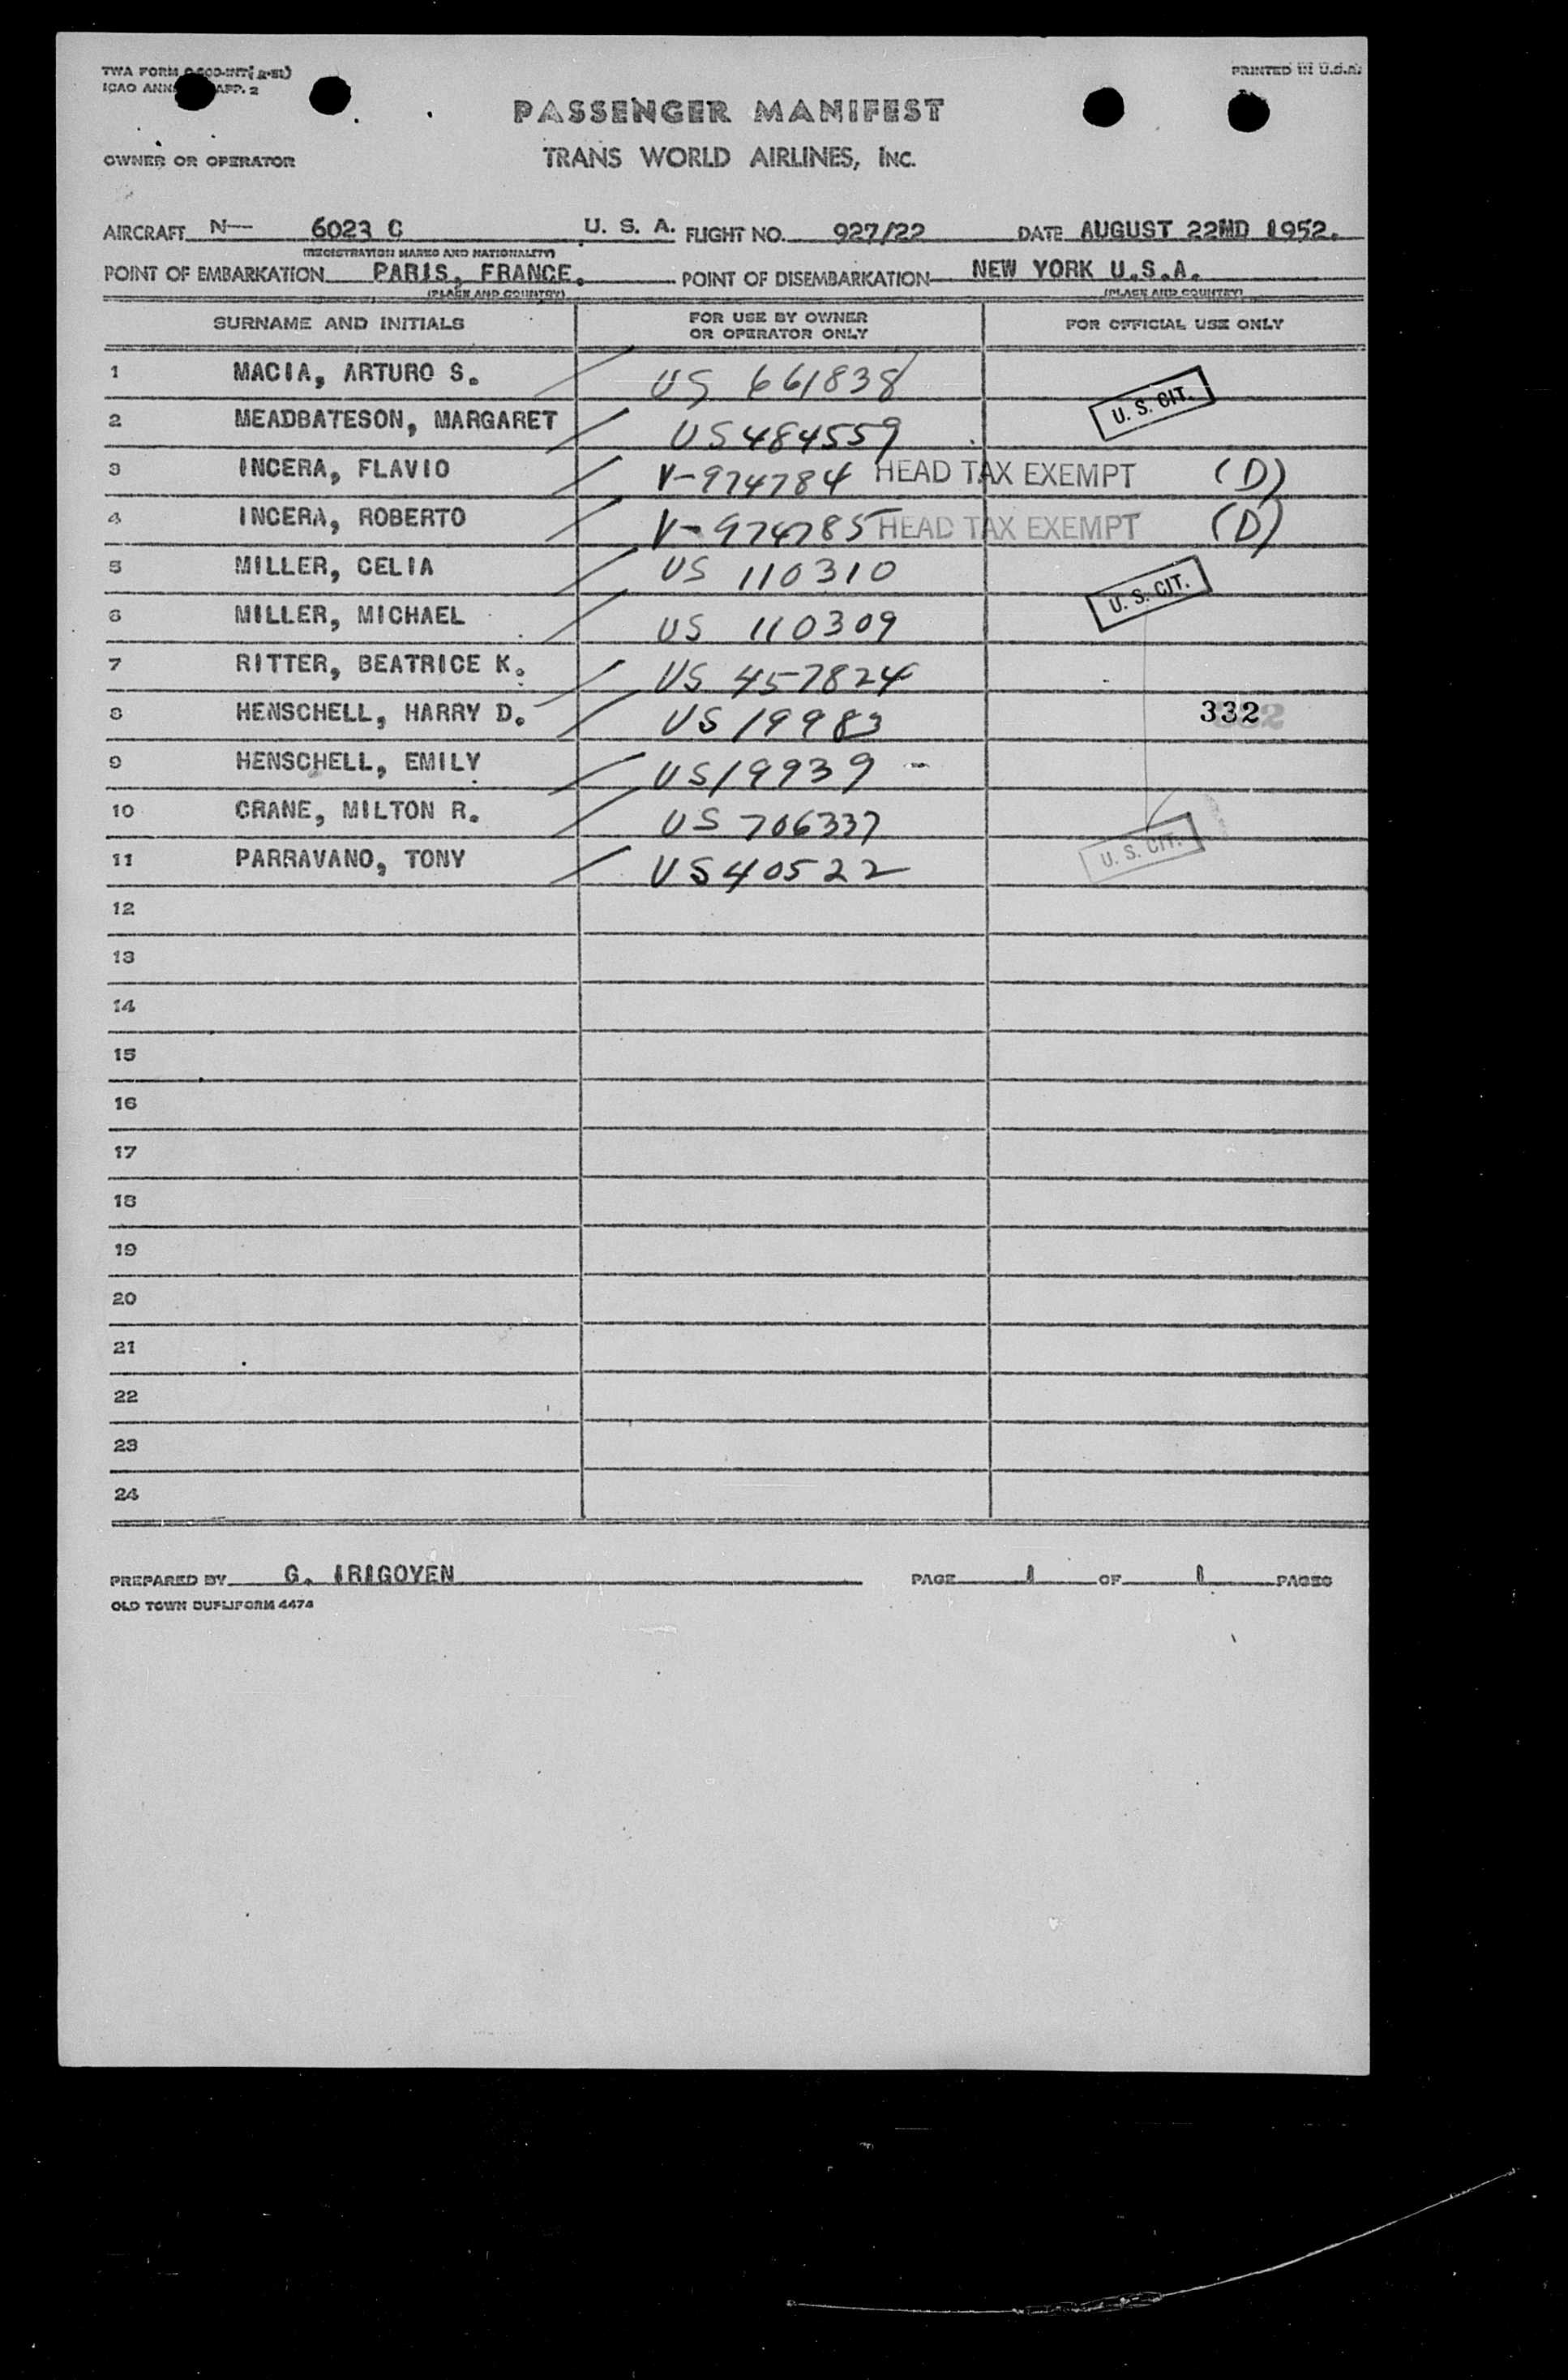 TWA FORM
ICAO ANN APP. 2
PRINTED IN U.S.A.
PASSENGER MANIFEST
OWNER OR OPERATOR
TRANS WORLD AIRLINES, INC.
AIRCRAFT N— 6023 C U. S. A. FLIGHT NO. 927/22 DATE AUGUST 22MD 1952.
(REGISTRATION MARKS AND NATIONALITY)
POINT OF EMBARKATION PARIS, FRANCE. POINT OF DISEMBARKATION NEW YORK U.S.A.
(PLACE AND COUNTRY) (PLACE AND COUNTRY)
SURNAME AND INITIALS FOR USE BY OWNER OR OPERATOR ONLY FOR OFFICIAL USE ONLY
1 MACIA, ARTURO S. US 661838
U. S. CIT.
2 MEADBATESON, MARGARET US 484559
3 INCERA, FLAVIO V-974784 HEAD TAX EXEMPT (D)
4 INCERA, ROBERTO V-974785 HEAD TAX EXEMPT (D)
5 MILLER, CELIA US 110310
U. S. CIT.
6 MILLER, MICHAEL US 110309
7 RITTER, BEATRICE K. US 457824
8 HENSCHELL, HARRY D. US 19983 332
9 HENSCHELL, EMILY US 19939 -
10 CRANE, MILTON R. US 706337
11 PARRAVANO, TONY US 40522 U. S. CIT.
12
13
14
15
16
17
18
19
20
21
22
23
24
PREPARED BY G. IRIGOYEN PAGE 1 OF 1 PAGES
OLD TOWN DUPLIFORM 4474